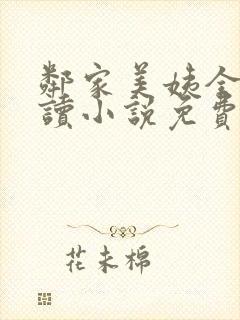 鄰家美姨全
讀小說免費
花未棉